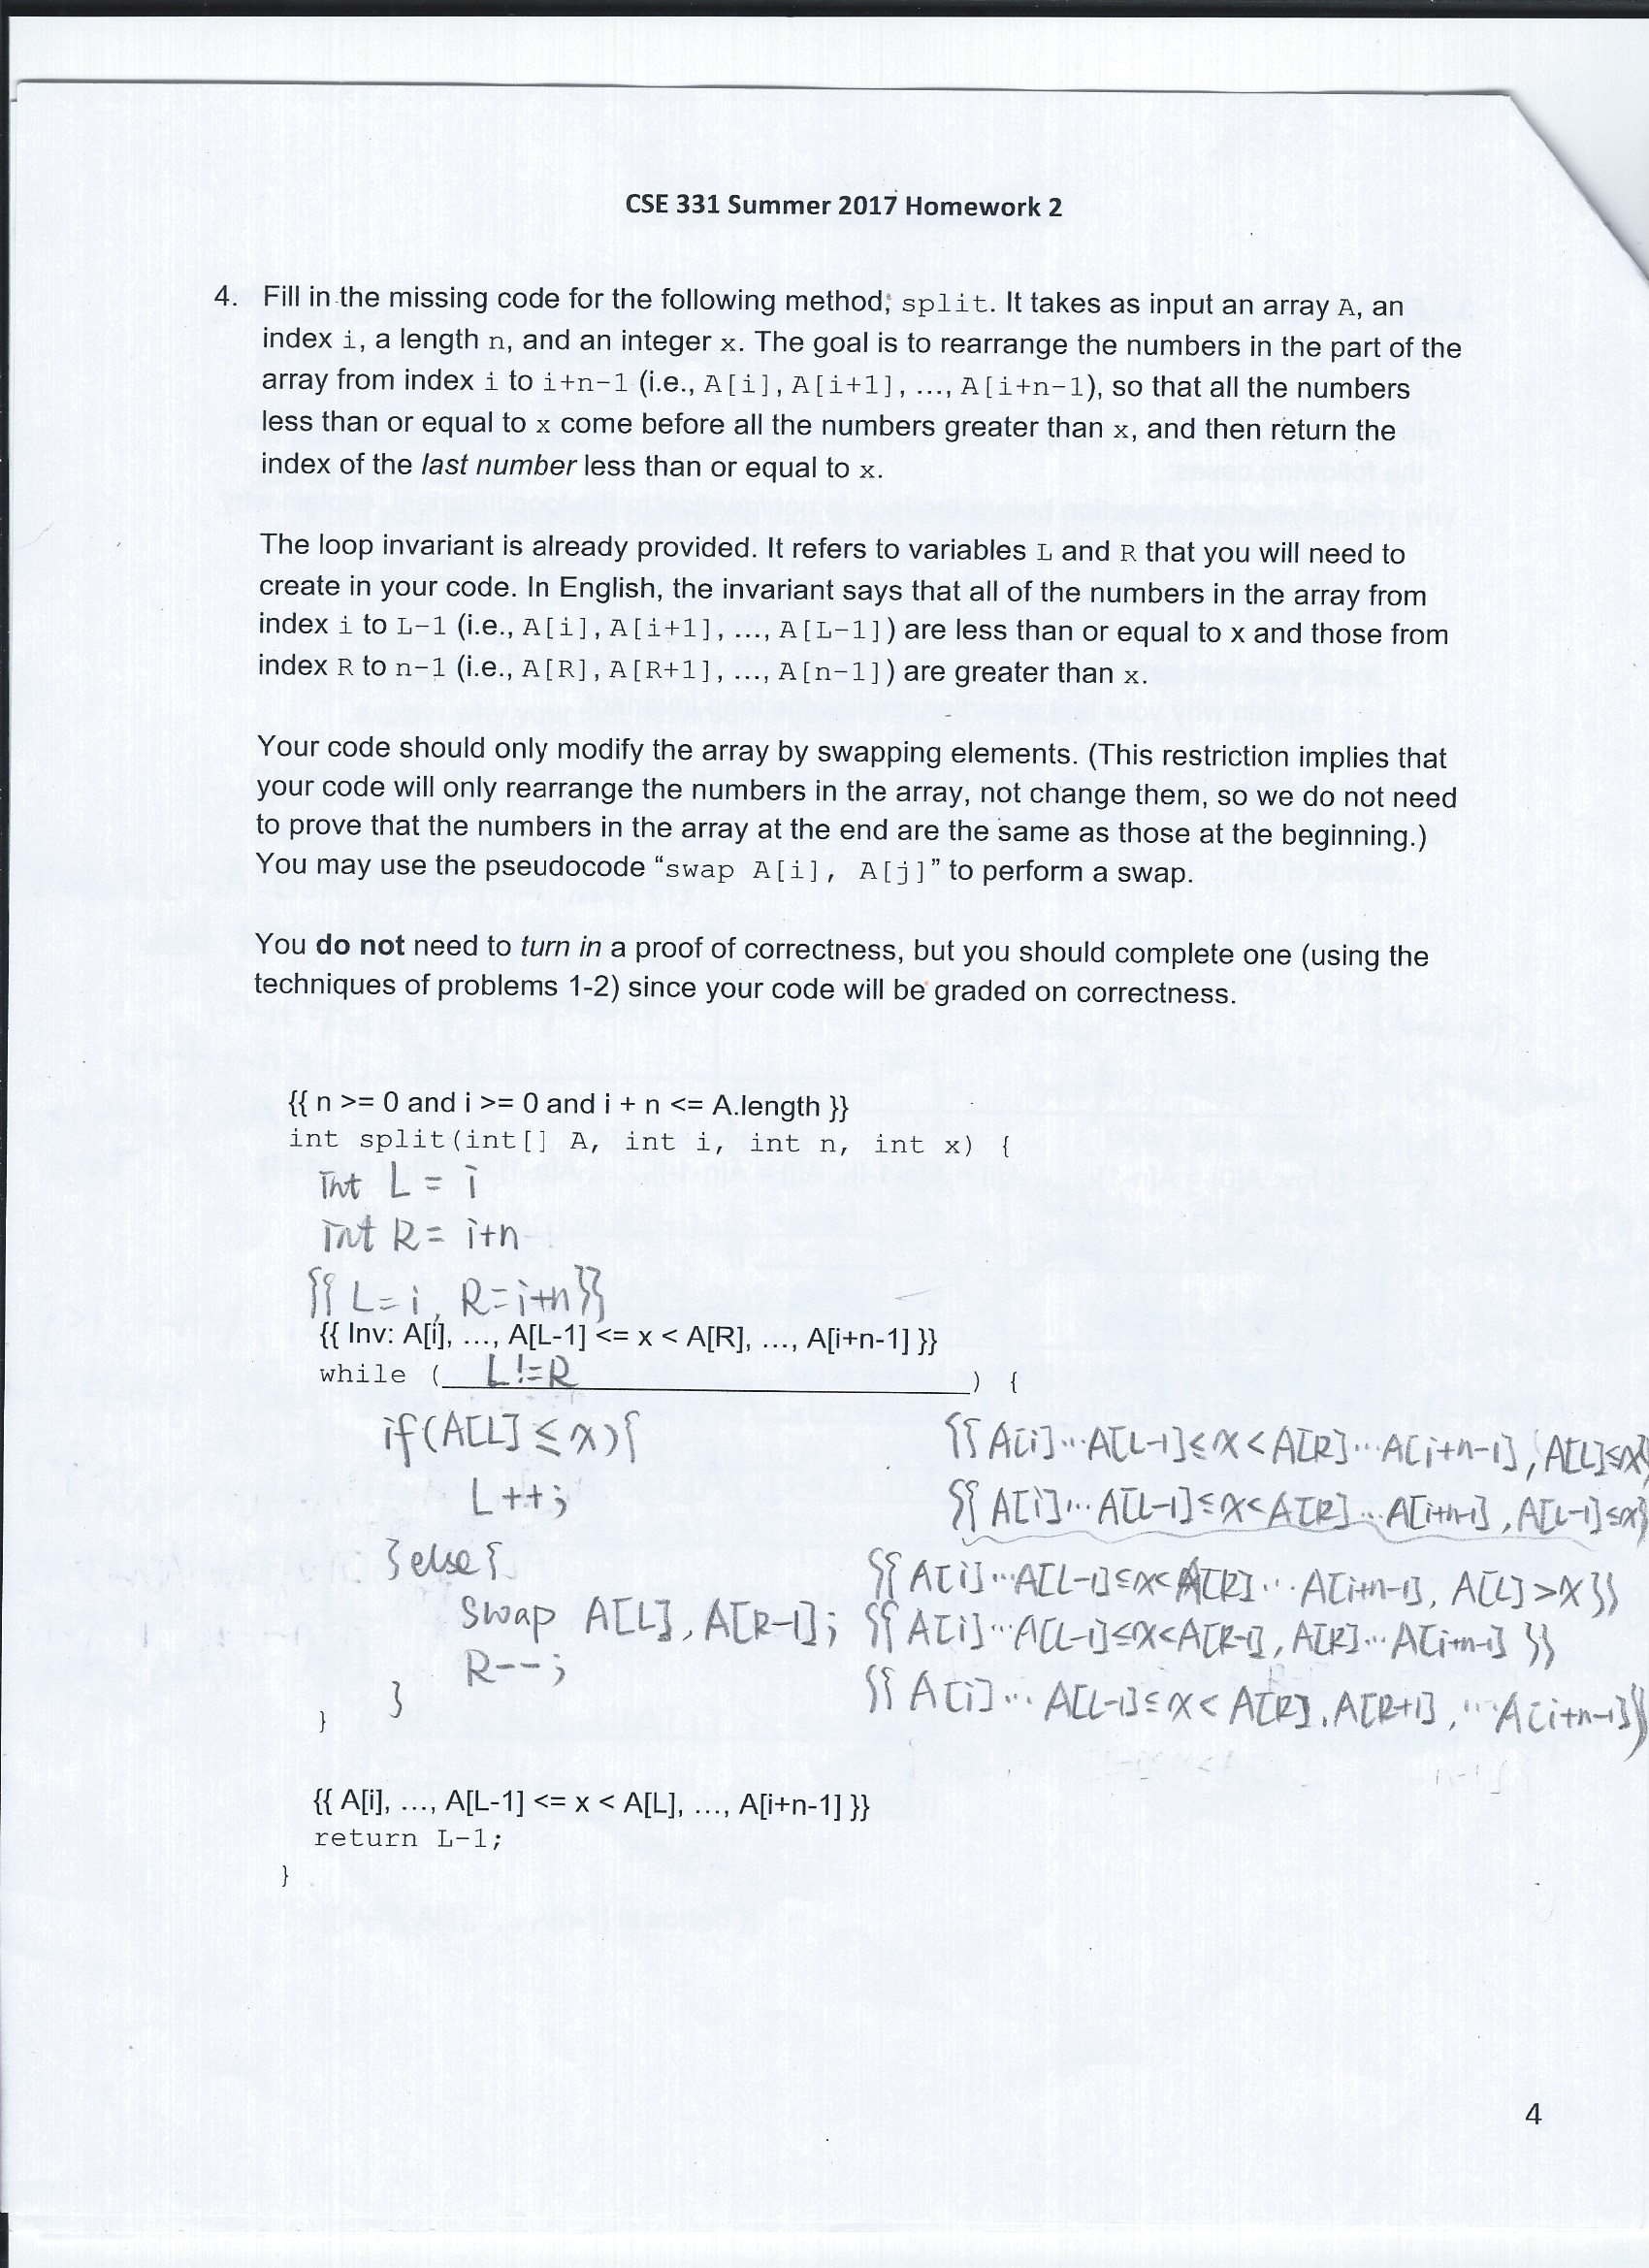 CSE 331 Summer 2017 Homework 2
4. Fill in the missing code for the following method, split. It takes as input an array A, an
index i, a length n, and an integer x. The goal is to rearrange the numbers in the part of the
array from index i to i+n-1 (i.e., A[i], A[i+1], ..., A[i+n-1]), so that all the numbers
less than or equal to x come before all the numbers greater than x, and then return the
index of the last number less than or equal to x.
The loop invariant is already provided. It refers to variables L and R that you will need to
create in your code. In English, the invariant says that all of the numbers in the array from
index i to L-1 (i.e., A[i], A[i+1], ..., A[L-1]) are less than or equal to x and those from
index R to n-1 (i.e., A[R], A[R+1], ..., A[n-1]) are greater than x.
Your code should only modify the array by swapping elements. (This restriction implies that
your code will only rearrange the numbers in the array, not change them, so we do not need
to prove that the numbers in the array at the end are the same as those at the beginning.)
You may use the pseudocode “swap A[i], A[j]” to perform a swap.
You do not need to turn in a proof of correctness, but you should complete one (using the
techniques of problems 1-2) since your code will be graded on correctness.
{{ n >= 0 and i >= 0 and i + n <= A.length }}
int split(int[] A, int i, int n, int x) {
int L = i
int R = i+n
{{ L=i, R=i+n}}
{{ Inv: A[i], ..., A[L-1] <= x < A[R], ..., A[i+n-1] }}
while ( L!=R ) {
if(A[L] ≤ x){ {{ A[i]...A[L-1]≤x<A[R]...A[i+n-1], A[L]≤x}
L++; {{ A[i]...A[L-1]≤x<A[R]...A[i+n-1], A[L-1]≤x}
}else{ {{ A[i]...A[L-1]≤x<A[R]...A[i+n-1], A[L]>x}}
Swap A[L], A[R-1]; {{ A[i]...A[L-1]≤x<A[R-1], A[R]...A[i+n-1] }}
R--; {{ A[i]...A[L-1]≤x<A[R], A[R+1], ...A[i+n-1]}}
}
}
{{ A[i], ..., A[L-1] <= x < A[L], ..., A[i+n-1] }}
return L-1;
}
4